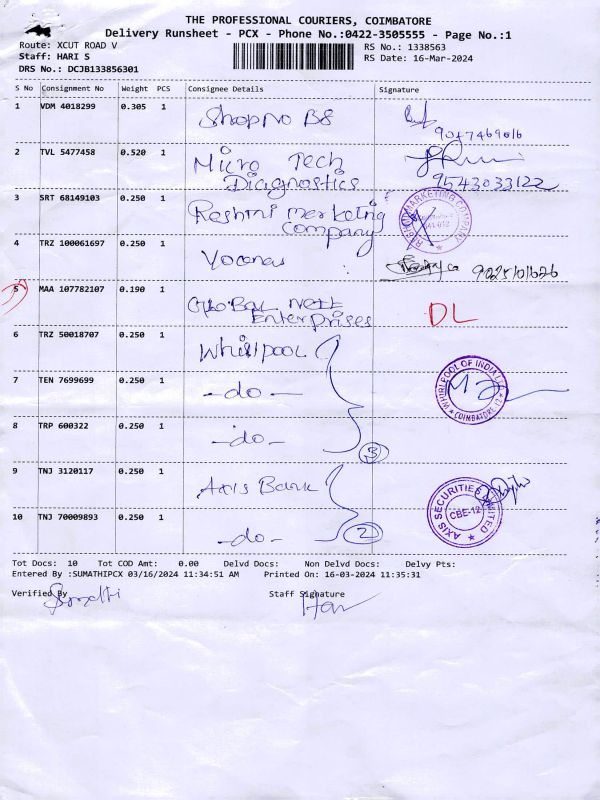 THE PROFESSIONAL COURIERS, COIMBATORE
Delivery Runsheet - PCX - Phone No.:0422-3505555 - Page No.:1
Route: XCUT ROAD V
RS No.: 1338563
Staff: HARI S
RS Date: 16-Mar-2024
DRS No.: DCJB133856301
S No Consignment No Weight PCS Consignee Details Signature
1 VDM 4018299 0.305 1 Shop No B8
2 TVL 5477458 0.520 1 Micro Tech
Diagnostics 9543033122
3 SRT 68149103 0.250 1 Reshmi Marketing
Company
4 TRZ 100061697 0.250 1
5 MAA 107782107 0.190 1 Global Nett
Enterprises DL
6 TRZ 50018707 0.250 1 Whirlpool
7 TEN 7699699 0.250 1 -do- WHIRLPOOL OF INDIA COIMBATORE-12
8 TRP 600322 0.250 1 -do- 3
9 TNJ 3120117 0.250 1 Axis Bank
10 TNJ 70009893 0.250 1 -do- 2 AXIS SECURITIES LIMITED CBE-12
Tot Docs: 10 Tot COD Amt: 0.00 Delvd Docs: Non Delvd Docs: Delvy Pts:
Entered By :SUMATHIPCX 03/16/2024 11:34:51 AM Printed On: 16-03-2024 11:35:31
Verified By Staff Signature